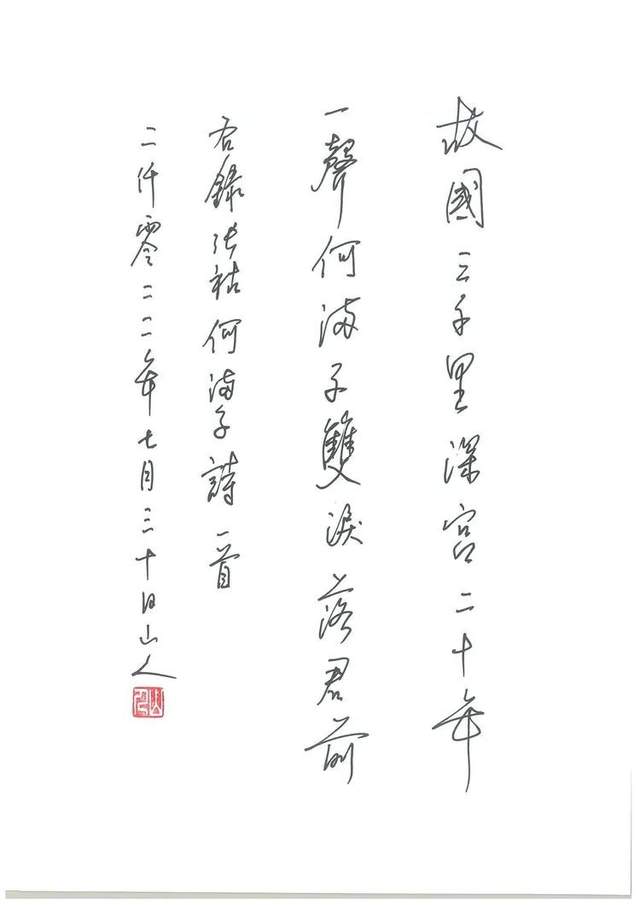 故國三千里深宮二十年
一聲何滿子雙淚落君前
右錄張祜何滿子詩一首
二仟零二二年七月三十日山人
山人